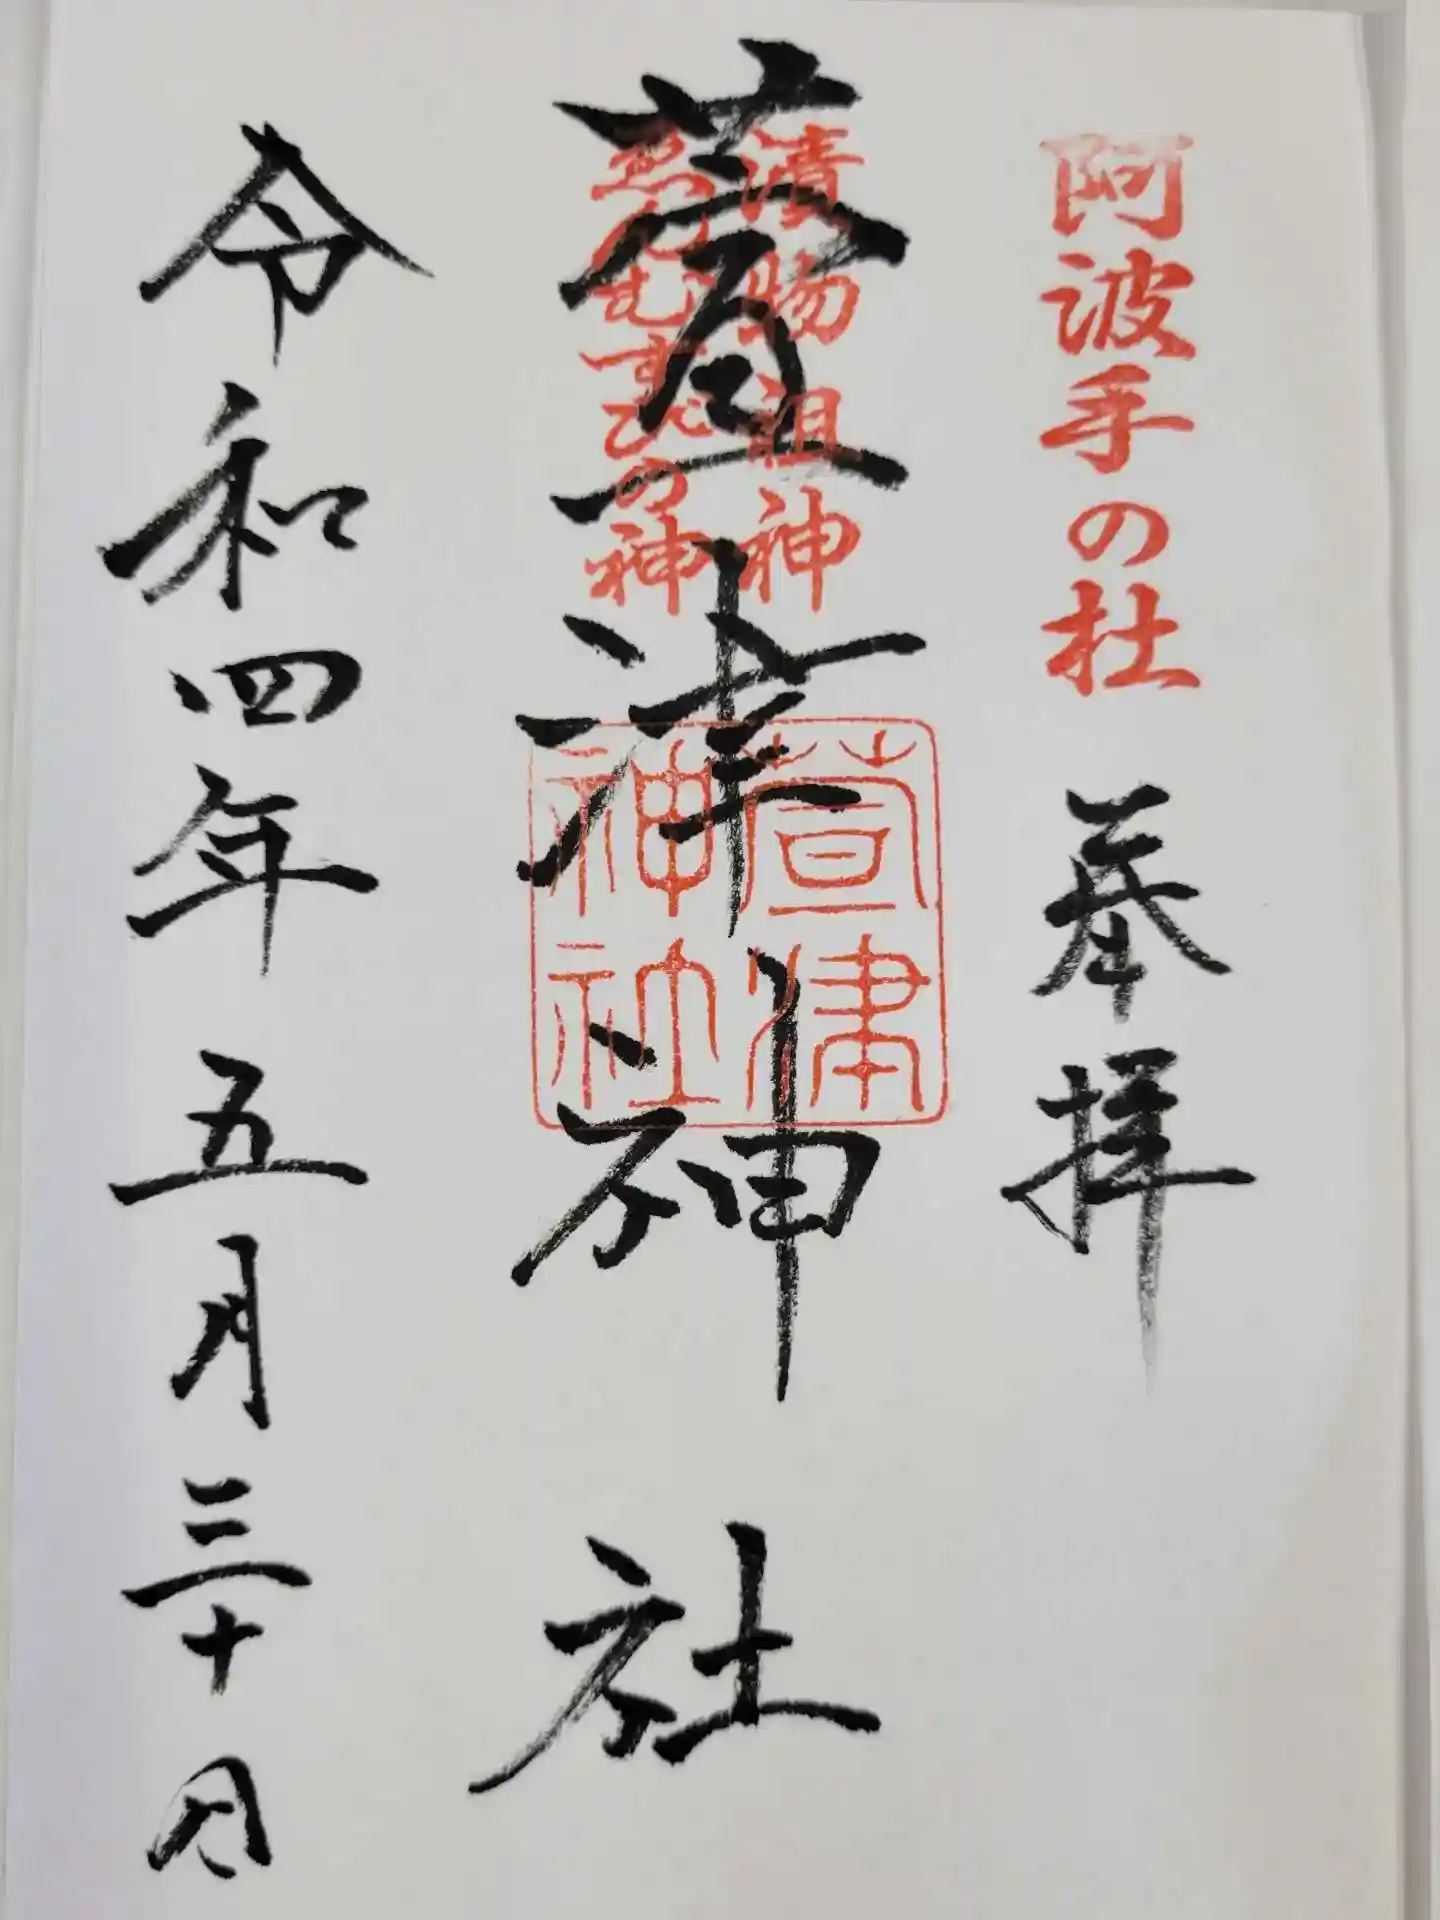 阿波手の杜
奉拝
漬物祖神
ゑんむすひの神
萱津神社
萱津神社
令和四年 五月三十日